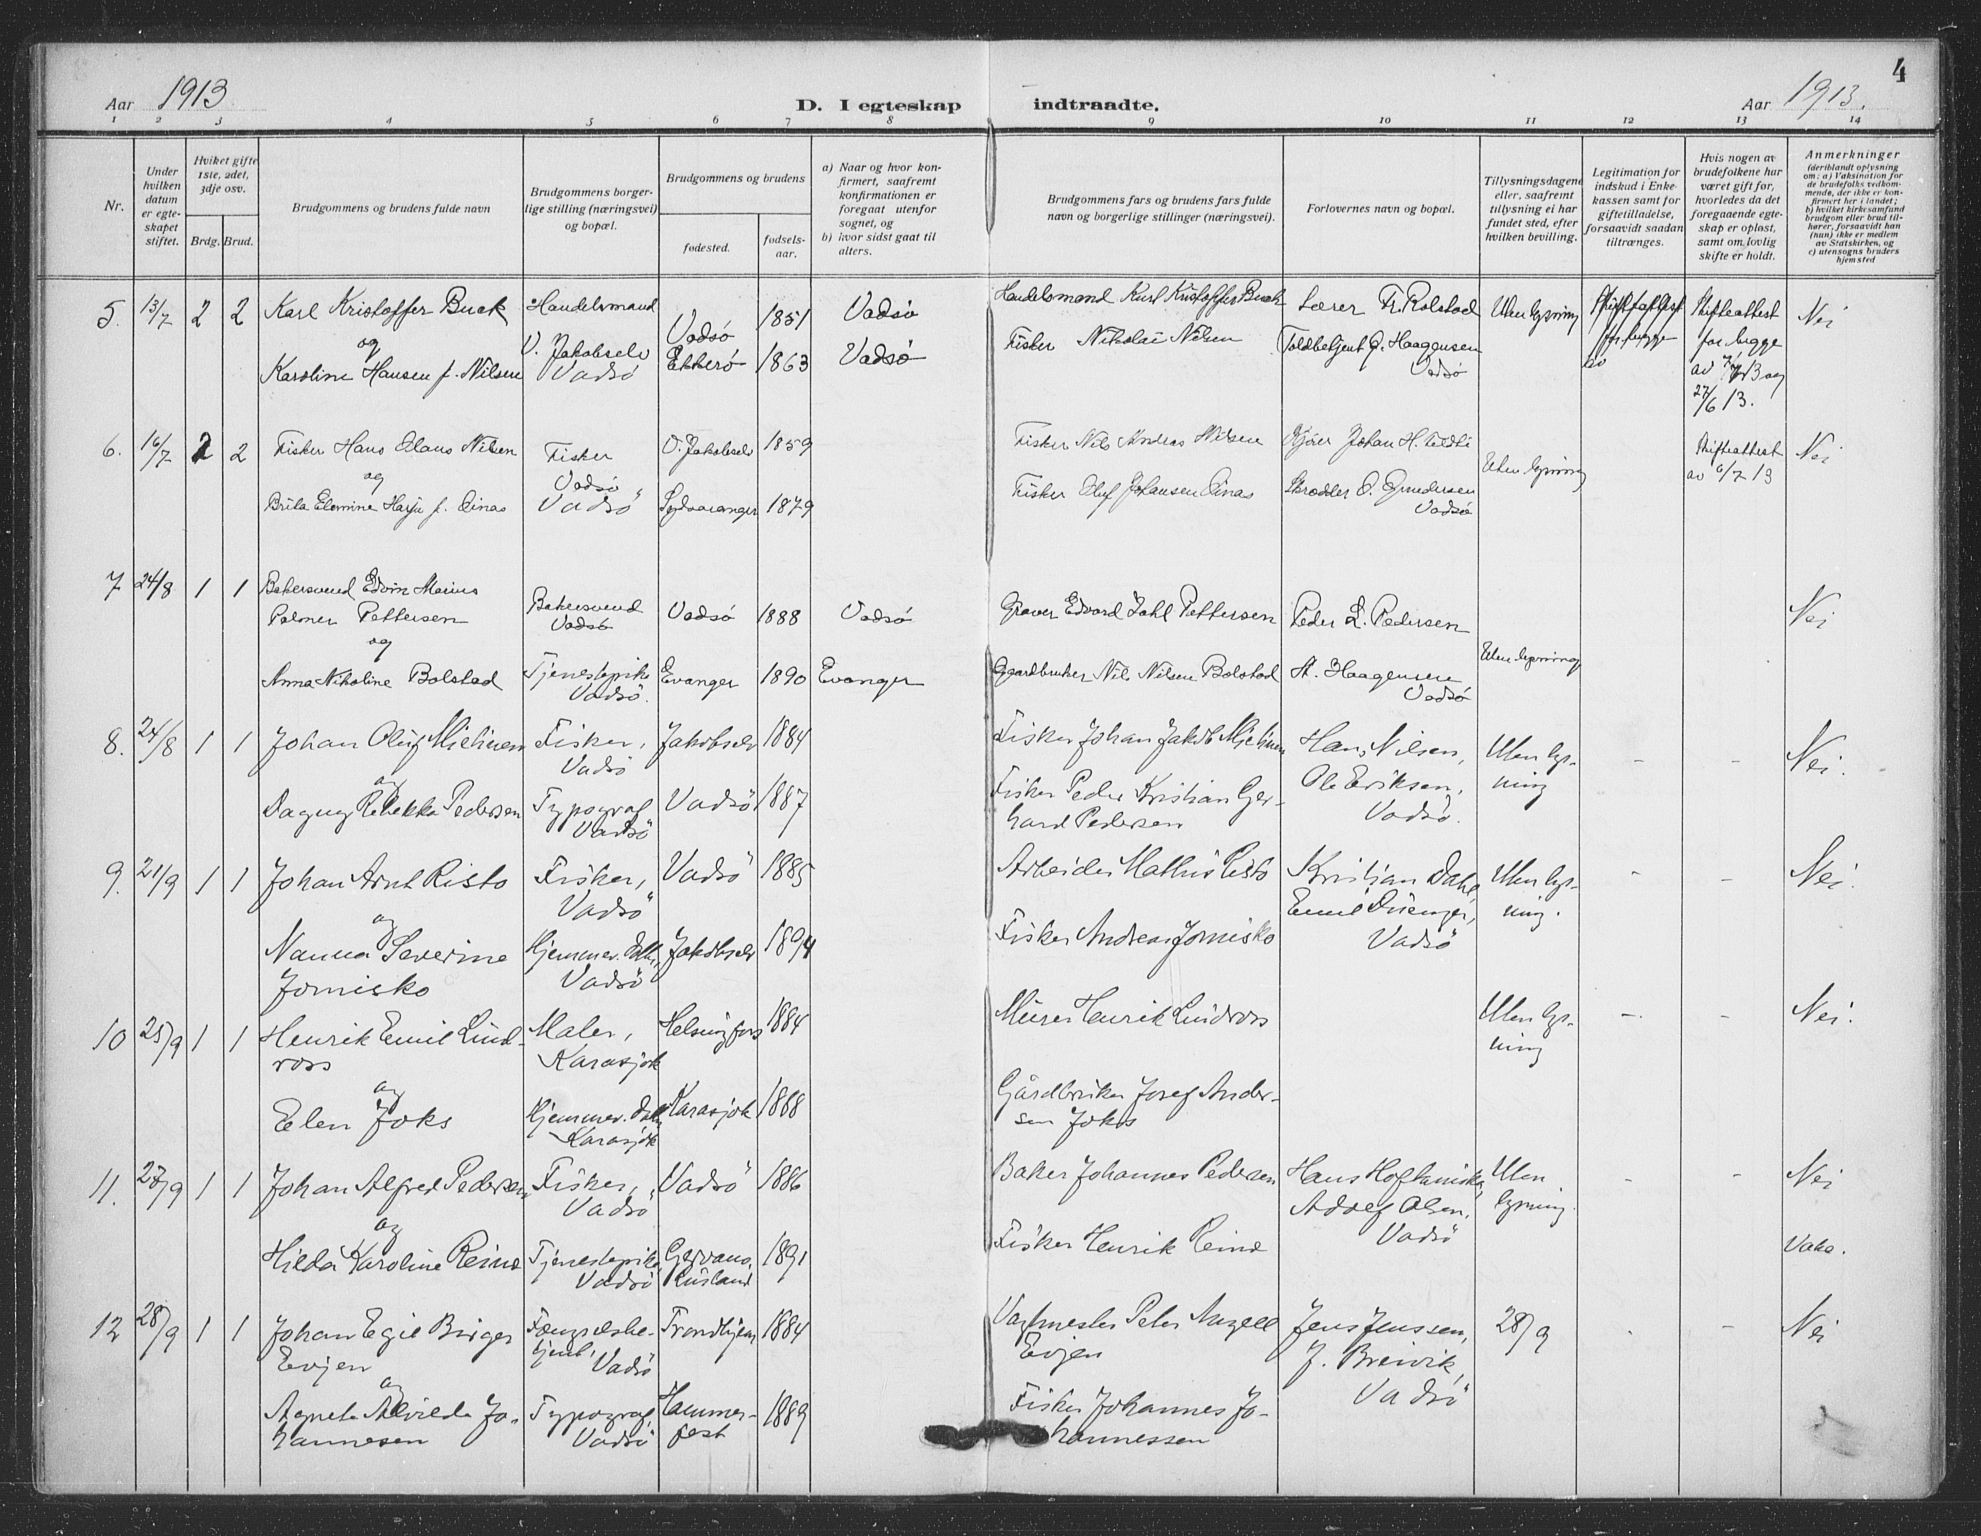 4
Aar 1913
D. I egteskap indtraadte.
Aar 1913.
1 2 3 4 5 6 7 8 9 10 11 12 13 14
Nr.
Under hvilken datum er egteskapet stiftet.
Hvilket gifte 1ste, 2det, 3dje osv.
Brdg. Brud.
Brudgommens og brudens fulde navn
Brudgommens borgerlige stilling (næringsvei) og bopæl.
Brudgommens og brudens
fødested.
fødselsaar.
a) Naar og hvor konfirmert, saafremt konfirmationen er foregaat utenfor sognet, og
b) hvor sidst gaat til alters.
Brudgommens fars og brudens fars fulde navn og borgerlige stillinger (næringsvei).
Forlovernes navn og bopæl.
Tillysningsdagene eller, saafremt tillysning ei har fundet sted, efter hvilken bevilling.
Legitimation for indskud i Enkekassen samt for giftetilladelse, forsaavidt saadan tiltrænges.
Hvis nogen av brudefolkene har været gift før, hvorledes da det foregaaende egteskap er opløst, samt om lovlig skifte er holdt.
Anmerkninger
(deriblandt oplysning om: a) Vaksination for de brudefolks vedkommende, der ikke er konfirmert her i landet; b) hvilket kirkesamfund brudgom eller brud tilhører, forsaavidt han (hun) ikke er medlem av Statskirken, og c) utensogns bruders hjemsted
5. 13/7 2 2 Karl Kristoffer Buck Handelsmand V. Jakobselv Vadsø 1851 Vadsø Handelsmand Karl Kristoffer Buck Lærer Fr. Rolstad Uten lysning Skifteattest for begge Skifteattest for begge av 7/7 13 og 27/6 13. Nei
og
Karoline Hansen f. Nilsen Vadsø Ekkerø 1863 Vadsø Fisker Nikolai Nilsen Toldbetjent Haagensen Vadsø
6. 16/7 2 2 Fisker Hans Olaus Nilsen Fisker Vadsø V. Jakobselv 1859 Fisker Nils Andreas Nilsen Johan H. Uten lysning Skifteattest av 6/7 13 Nei
og
Brita Elemine Harju f. Oinas Vadsø Sydvaranger 1879 Fisker Oluf Johansen Oinas Skrædder O. Gundersen Vadsø
7 24/8 1 1 Bakersvend Edvin Marius Palmer Pettersen Bakersvend Vadsø Vadsø 1888 Vadsø Graver Edvard Dahl Pettersen Peder L. Pedersen Uten lysning Nei
og
Anna Nikoline Bolstad Tjenestepike Vadsø. Evanger 1890 Evanger Gaardbruker Nils Nilsen Bolstad A. Haagensen Vadsø
8. 24/8 1 1 Johan Oluf Mietinen Fisker, Vadsø Jakobselv 1884 Fisker Johan Jakob Mietinen Hans Nilsen, Ole Eriksen, Vadsø. Uten lysning - - Nei.
og
Dagny Rebekka Pedersen Typograf Vadsø Vadsø 1887 Fisker Peder Kristian Gerhard Pedersen
9. 21/9 1 1 Johan Arnt Risto Fisker, Vadsø Vadsø 1885 Arbeider Mathis Risto Kristian Dahl, Emil Vadsø Uten lysning. - - Nei.
og
Nanna Severine Jomisko Hjemmev. Datter, Vadsø Jakobselv 1894 Fisker Andreas Jomisko
10 25/9 1 1 Henrik Emil Lindross Maler, Karasjok Helsingfors 1884 Murer Henrik Lindross Uten lysning - - Nei.
og
Elen Joks Hjemmev. Datter, Karasjok Karasjok 1888 Gårdbruker Josef Andersen Joks
11. 28/9 1 1 Johan Alfred Pedersen Fisker, Vadsø Vadsø 1886 Baker Johannes Pedersen Hans Adolf Olsen, Vadsø Uten lysning. - - Nei
og
Hilda Karoline Reino Tjenestepike Vadsø Rusland 1891 Fisker Henrik Reino Vaks.
12 28/9 1 1 Johan Egil Birger Evjen Fængselsbetjent, Vadsø Trondhjem 1884 Vaktmester Peter Angell Evjen Jens Jenssen, J. Breivik, Vadsø 28/9 - - Nei
og
Agnete Alvilde Johannesen Typograf, Vadsø Hammerfest 1889 Fisker Johannes Johannessen